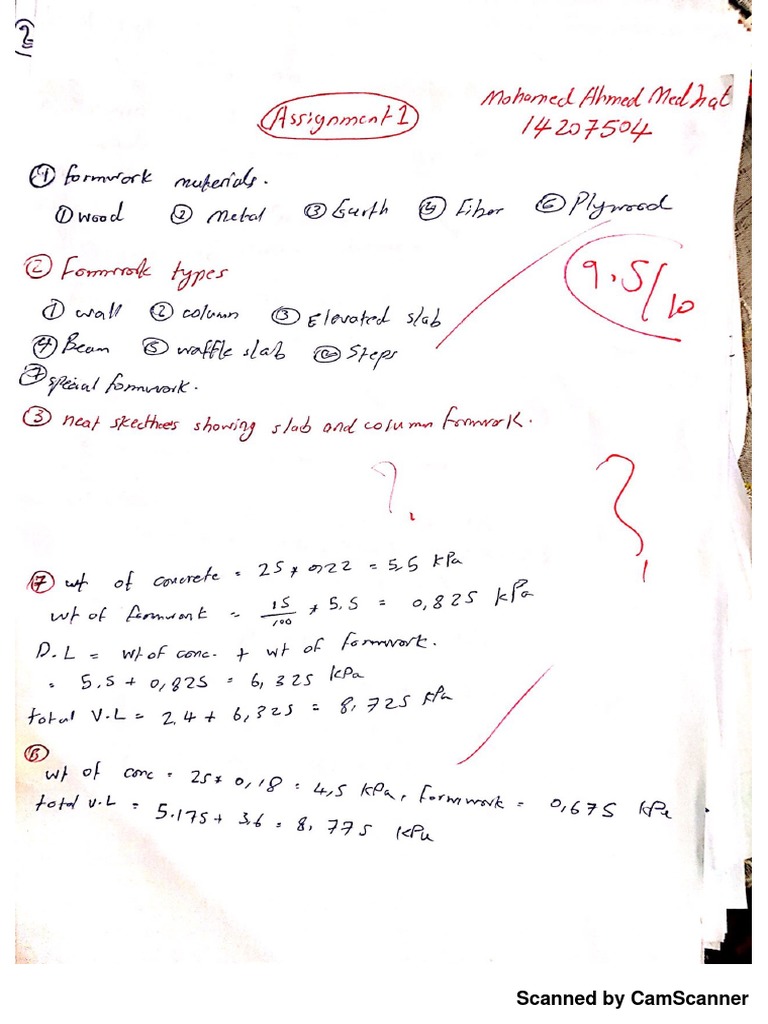 2
Assignment 1
Mohamed Ahmed Medhat
14207504
① formwork materials.
① wood ② Metal ③ Earth ④ Fiber ⑥ Plywood
9.5/10
② Formwork types
① wall ② column ③ Elevated slab
④ Beam ⑤ waffle slab ⑥ Steps
⑦ special formwork.
③ neat skecthes showing slab and column formwork.
?
?
⑦ wt of concrete = 25 * 0,22 = 5,5 kPa
wt of formwork = 15/100 * 5.5 = 0,825 kPa
D.L = wt of conc. + wt of formwork.
= 5.5 + 0,825 = 6,325 kPa
total V.L = 2.4 + 6,325 = 8,725 kPa
⑧ wt of conc = 25 * 0,18 = 4,5 kPa, formwork = 0,675 kPa
total V.L = 5.175 + 3.6 = 8,775 kPa
Scanned by CamScanner